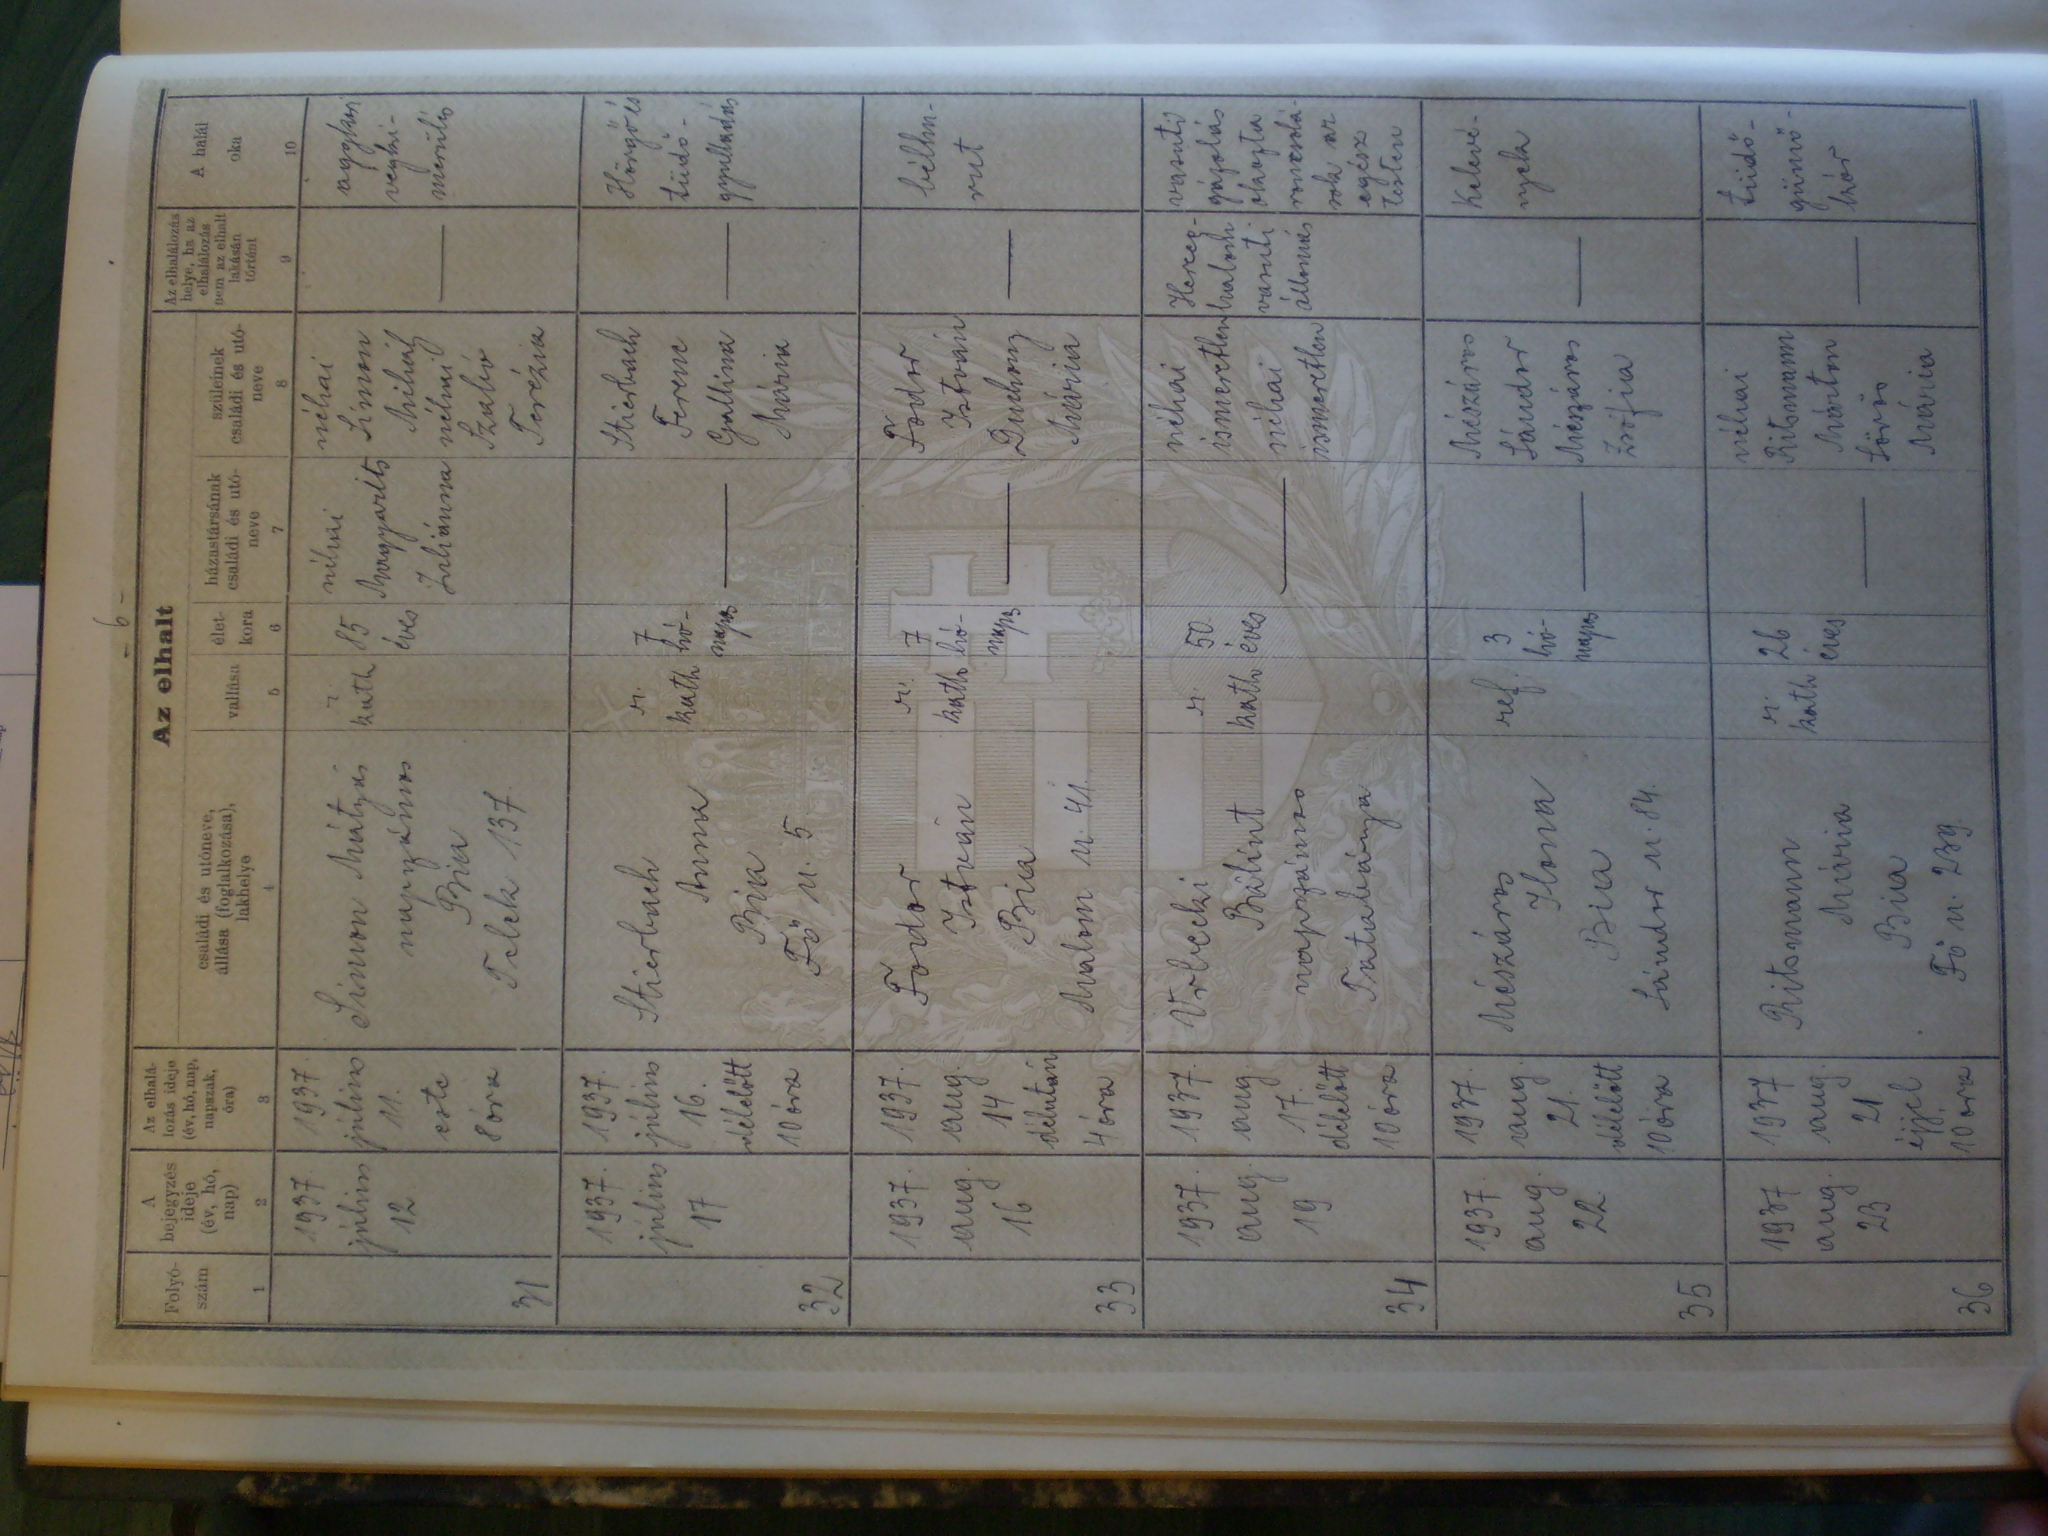 - 6 -
Az elhalt
Folyó-
szám
1
A
bejegyzés
ideje
(év, hó,
nap)
2
Az elhalá-
lozás ideje
(év, hó, nap,
napszak,
óra)
3
családi és utóneve,
állása (foglalkozása),
lakhelye
4
vallása
5
élet-
kora
6
házastársának
családi és utó-
neve
7
szüleinek
családi és utó-
neve
8
Az elhalálozás
helye, ha az
elhalálozás
nem az elhalt
lakásán
történt
9
A halál
oka
10
31
1937.
július
12.
1937.
július
11.
este
8 óra
Simon Mátyás
napszámos
Bia
Telek 137.
r.
kath
85
éves
néhai
Magyarits
Juliánna
néhai
Simon
Mihály
néhai
Szabó
Terézia
—
aggkori
végki-
merülés
32
1937.
július
17
1937.
július
16.
délelőtt
10 óra
Stierbach
Anna
Bia
Fő u. 5
r.
kath
7
hó-
napos
—
Stierbach
Ferenc
Gallina
Mária
—
Hörgő és
tüdő-
gyulladás
33
1937.
aug.
16
1937.
aug.
14
délután
4 óra
Fodor
István
Bia
Malom u. 41.
r.
kath
7
hó-
napos
—
Fodor
István
Duchony
Mária
—
bélhu-
rut
34
1937.
aug.
19
1937.
aug.
17.
délelőtt
10 óra
Vrbecki
Bálint
napszámos
Tatabánya
r.
kath
50.
éves
—
néhai
ismeretlen
néhai
ismeretlen
Herceg-
halom
vasuti
állomás
vasuti
gázolás
okozta
roncsolá-
sok az
egész
testen
35
1937.
aug.
22.
1937.
aug.
21.
délelőtt
10 óra
Mészáros
Ilona
Bia
Sándor u. 84.
ref.
3
hó-
napos
—
Mészáros
Sándor
Mészáros
Zsófia
—
Kelevé-
nyek
36
1937
aug.
23
1937
aug.
21
éjjel
10 óra
Ritsmann
Mária
Bia
Fő u. 239.
r.
kath
26
éves
—
néhai
Ritsmann
Márton
Sörös
Mária
—
tüdő-
gümő-
kór